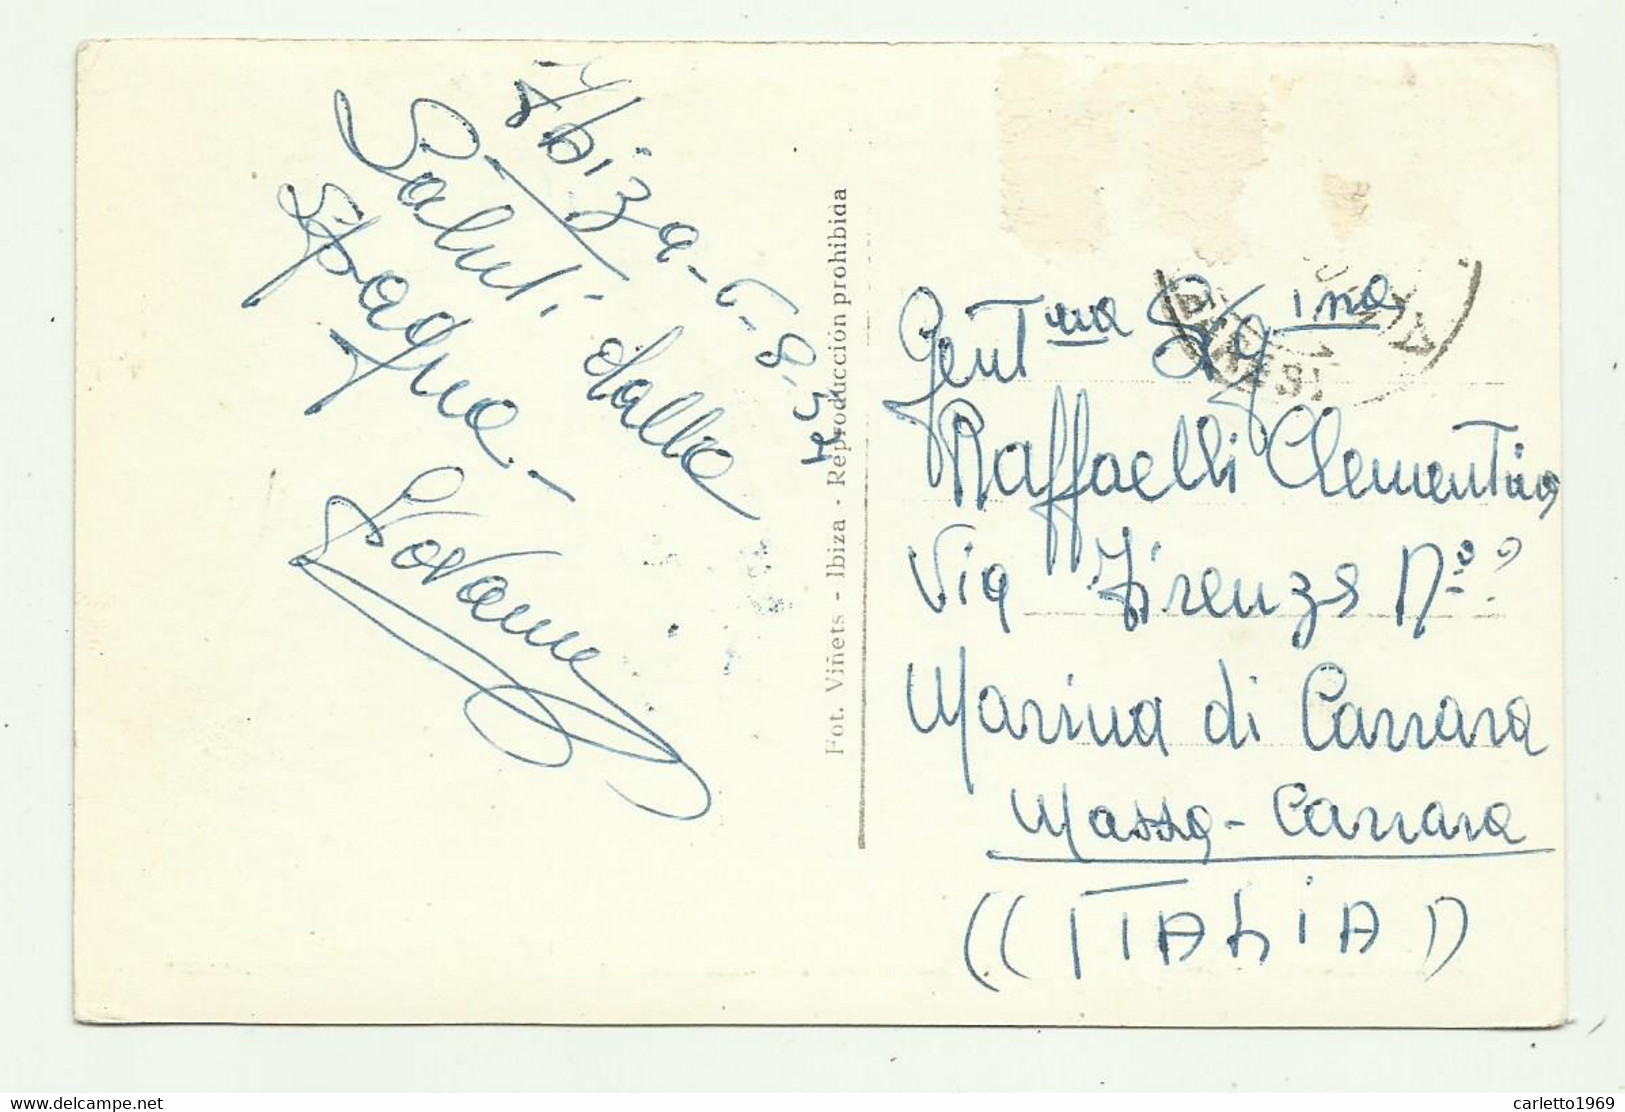 Ibiza - 6-8-54
Saluti dalla
Spagna -
Giovanni
Fot. Viñets - Ibiza - Reproducción prohibida
Gent.ma Sig.ina
Raffaelli Clementina
Via Firenze N.º ?
Marina di Carrara
Massa-Carrara
((ITALIA))
delcampe.net
carletto1969